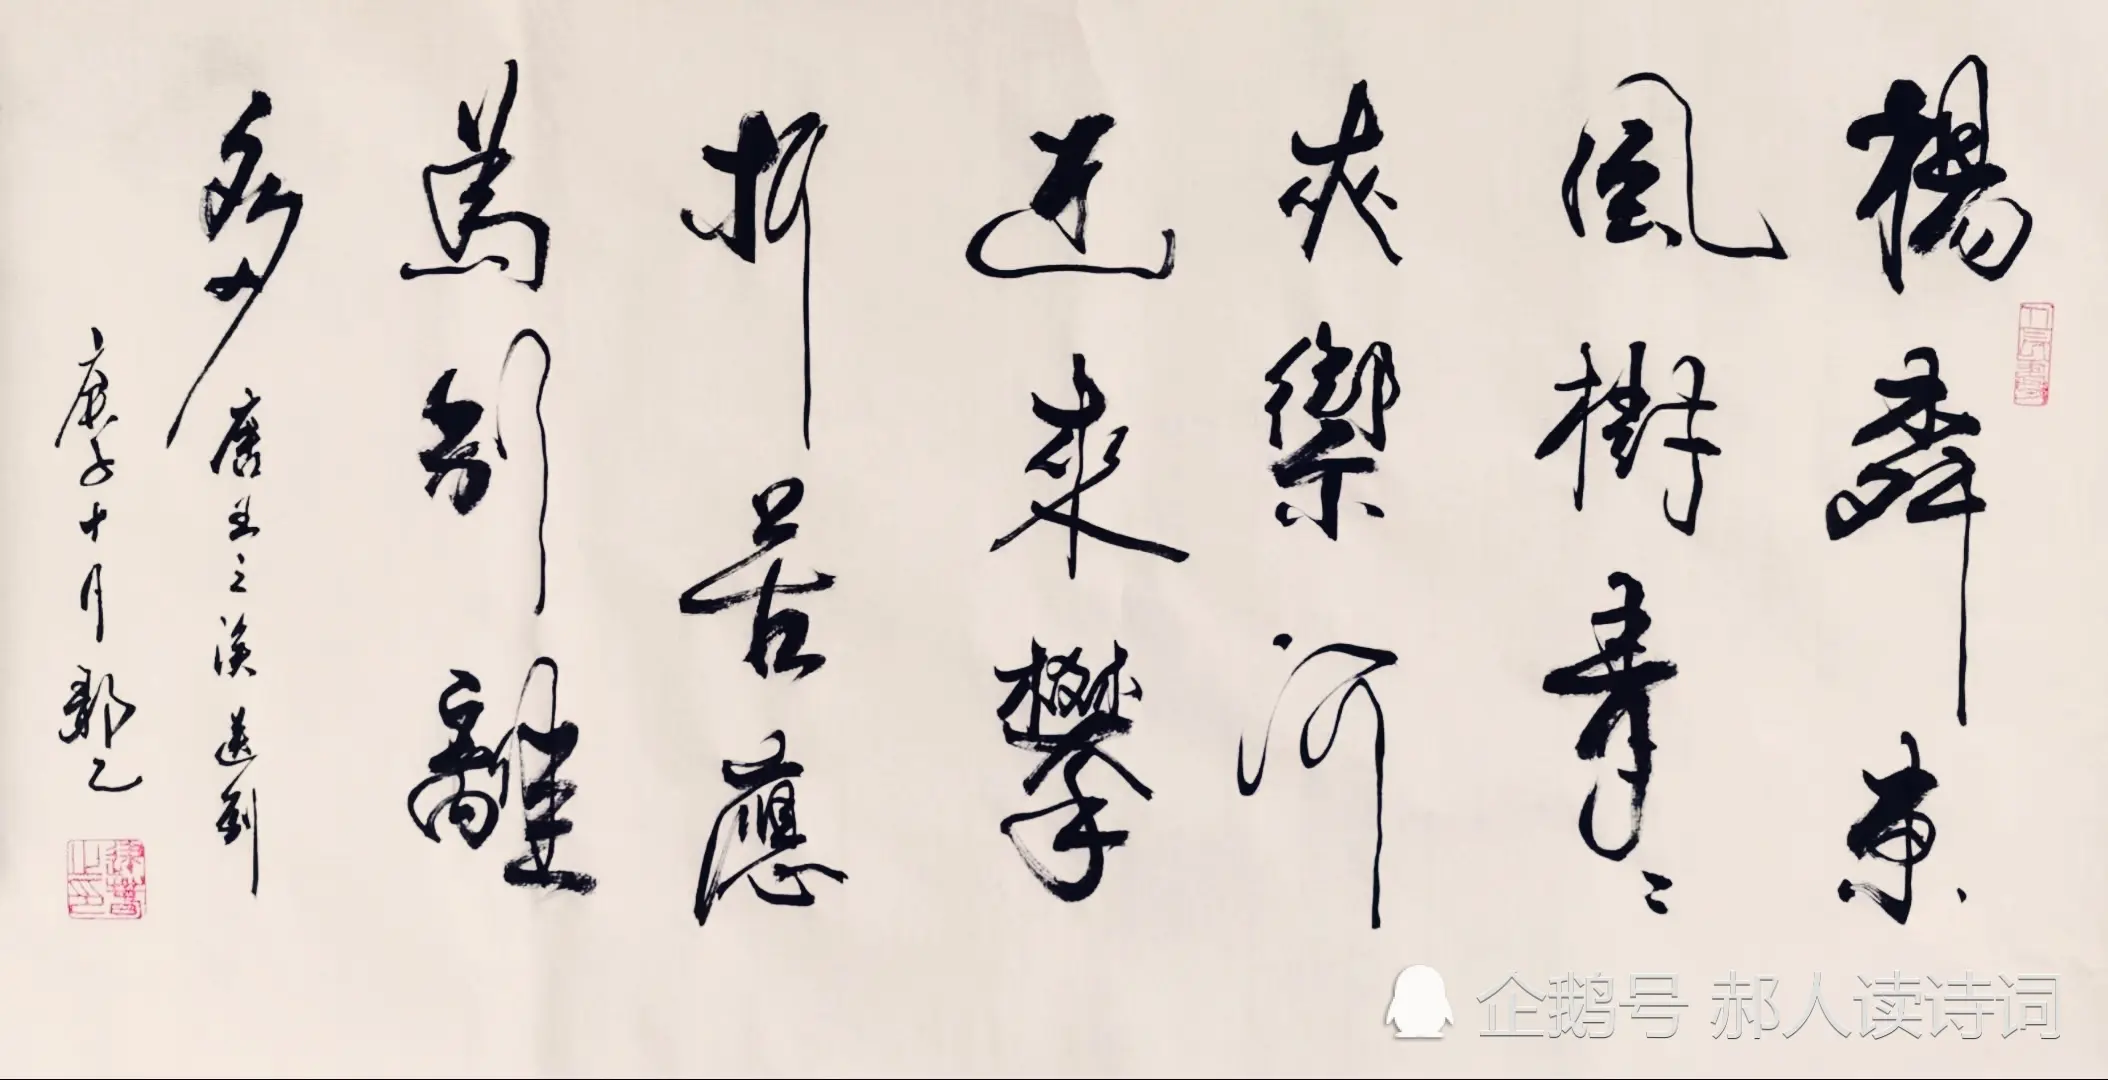 楊柳東
風樹青〻
夾禦河
近來攀
折苦應
為別離
多
唐王之渙送别
庚子十月
企鹅号 郝人读诗词